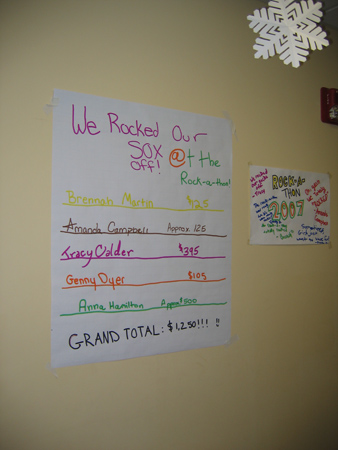 We Rocked Our
SOX @t the
off! Rock-a-thon!
Brennah Martin $125
Amanda Campbell Approx. 125
Tracy Calder $395
Genny Dyer $105
Anna Hamilton Approx 500
GRAND TOTAL: $1,250!!! !!
ROCK-A-
THON
2007